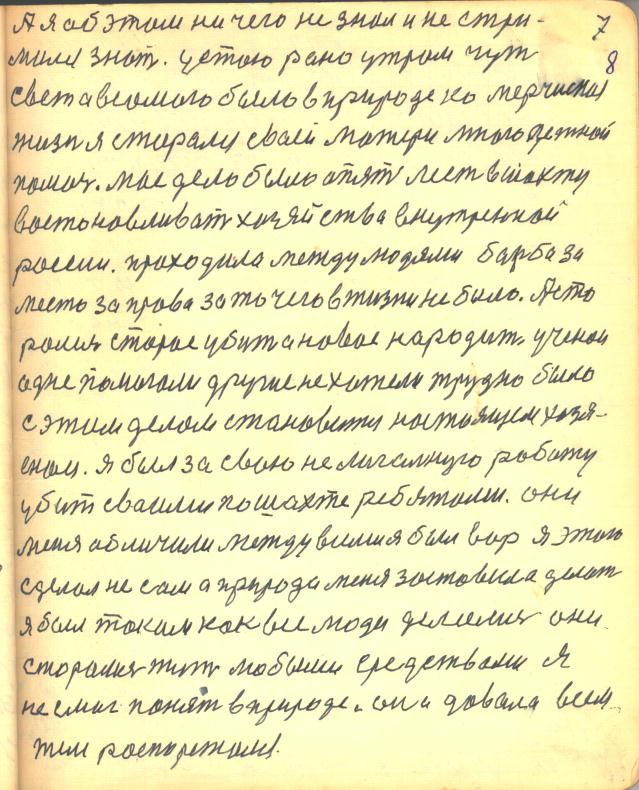 А я об этом ни чего не знал и не стри-
7
милс знат. устою рано утром чут
8
света весомого было в природе но
жизн я старалс своей матери много детной
помоч. мое дело было опят лест в шахту
востоновливат хозяйства внутренной
россии. проходила между людями барба за
место за права за то чего в жизни не было. А сто
ролис старое убит а новое народит. ученои
одне помогали другие не хотели трудно было
с этим делом становитц настоящем хозя-
еном. я был за свою не легалную работу
убит сваими по шахте ребятоми. они
меня обличили между вими я был вор я этого
сделал не сам а природа меня застовила делат
я был таким как все люди делолис они
сторолис жит любыми средствами я
не смог понят в природе. она довала всем
тем роспорежалс.